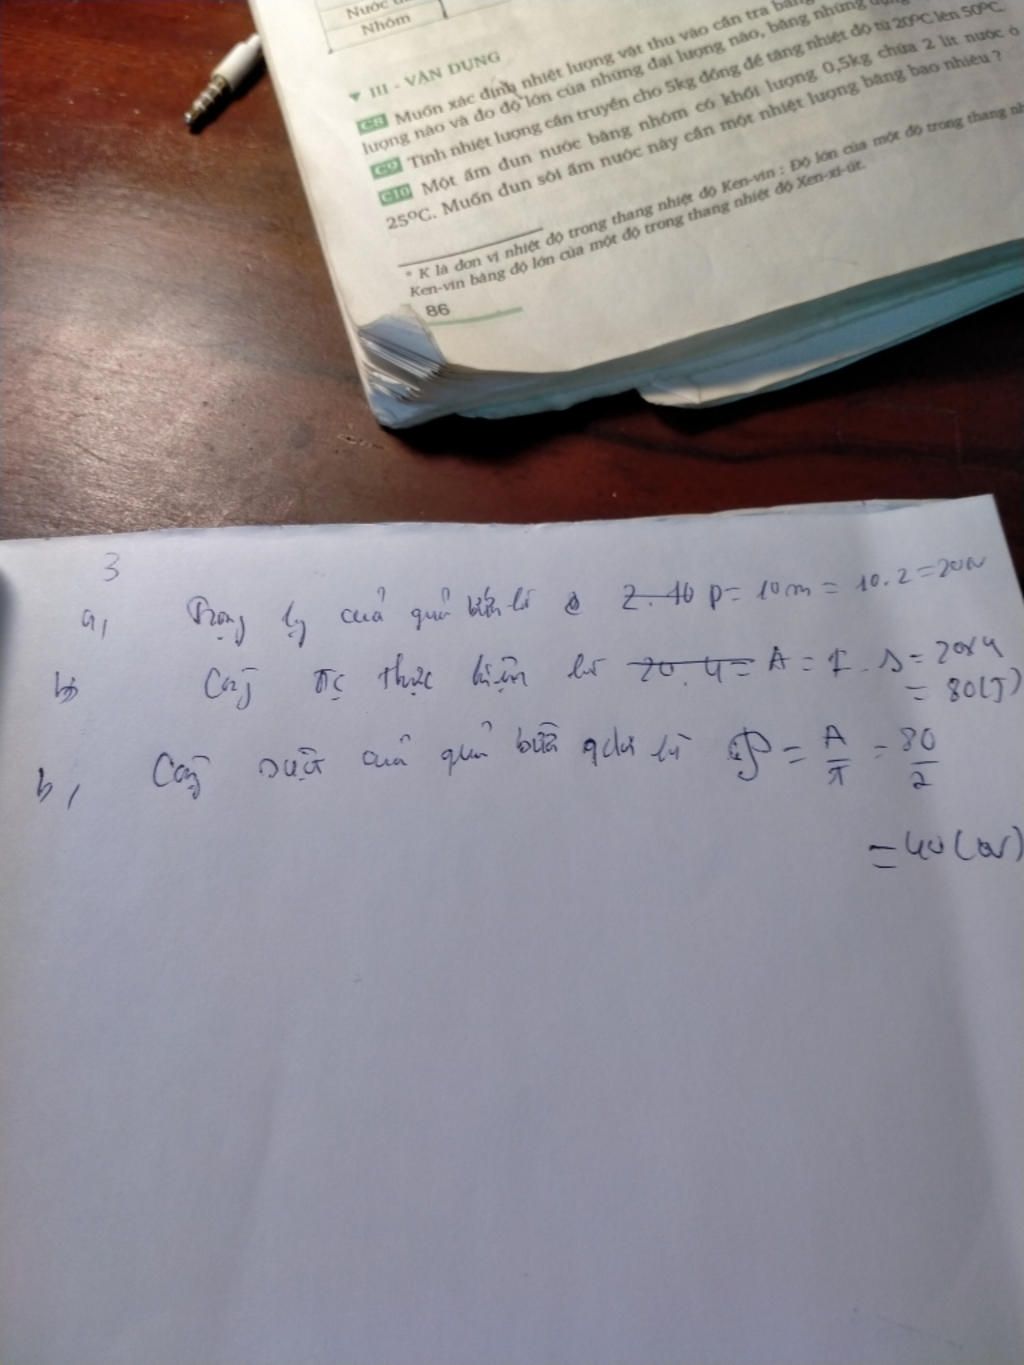 Nước
Nhôm
III - VẬN DỤNG
C8 Muốn xác định nhiệt lượng vật thu vào cần tra bảng
lượng nào và đo độ lớn của những đại lượng nào, bằng những
C9 Tính nhiệt lượng cần truyền cho 5kg đồng để tăng nhiệt độ từ 20°C lên 50°C.
C10 Một ấm đun nước bằng nhôm có khối lượng 0,5kg chứa 2 lít nước ở
25°C. Muốn đun sôi ấm nước này cần một nhiệt lượng bằng bao nhiêu ?
* K là đơn vị nhiệt độ trong thang nhiệt độ Ken-vin : Độ lớn của một độ trong thang
Ken-vin bằng độ lớn của một độ trong thang nhiệt độ Xen-xi-út.
86
3
a, Trọng lg của quả búa là P = 10m = 10.2 = 20N
Công thực hiện là A = F.s = 20x4
= 80(J)
b, Công suất của quả búa là P = A/t = 80/2
= 40 (W)